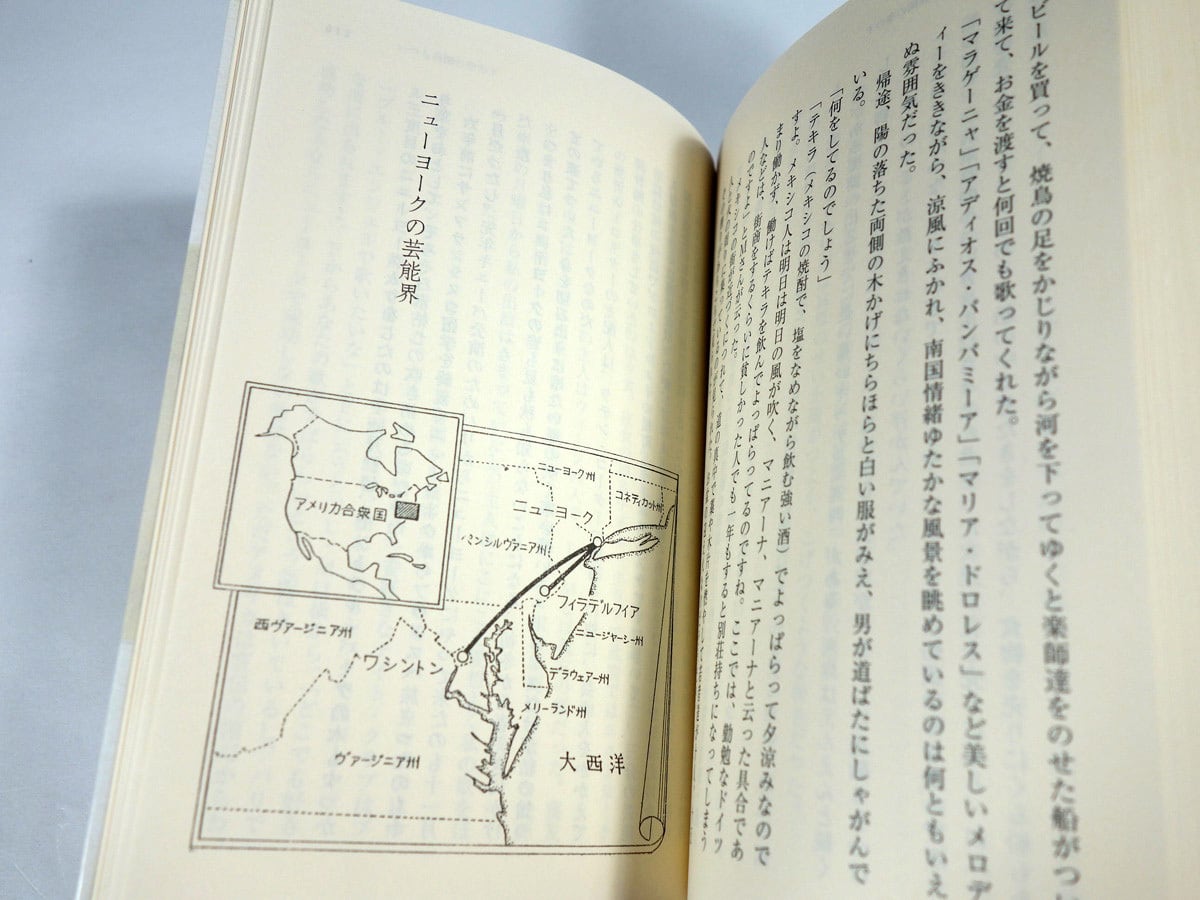 ビールを買って、焼鳥の足をかじりながら河を下ってゆくと楽師達をのせた船がつい
て来て、お金を渡すと何回でも歌ってくれた。
「マラゲーニャ」「アディオス・バンバミーア」「マリア・ドロレス」など美しいメロデ
ィーをききながら、涼風にふかれ、南国情緒ゆたかな風景を眺めているのは何ともいえ
ぬ雰囲気だった。
帰途、陽の落ちた両側の木かげにちらほらと白い服がみえ、男が道ばたにしゃがんで
いる。
「何をしてるのでしょう」
「テキラ（メキシコの焼酎で、塩をなめながら飲む強い酒）でよっぱらって夕涼みなので
すよ。メキシコ人は明日は明日の風が吹く、マニアーナ、マニアーナと云った具合であ
まり働かず、働けばテキラを飲んでよっぱらってるのですね。ここでは、勤勉なドイツ
人などは、街商をするくらいに貧しかった人でも一年もすると別荘持ちになってしまう
のですよ」とMさんが云った。
ニューヨークの芸能界
アメリカ合衆国
ニューヨーク州
コネティカット州
ニューヨーク
ペンシルヴァニア州
フィラデルフィア
ニュージャーシー州
西ヴァージニア州
ワシントン
デラウェアー州
メリーランド州
ヴァージニア州
大西洋